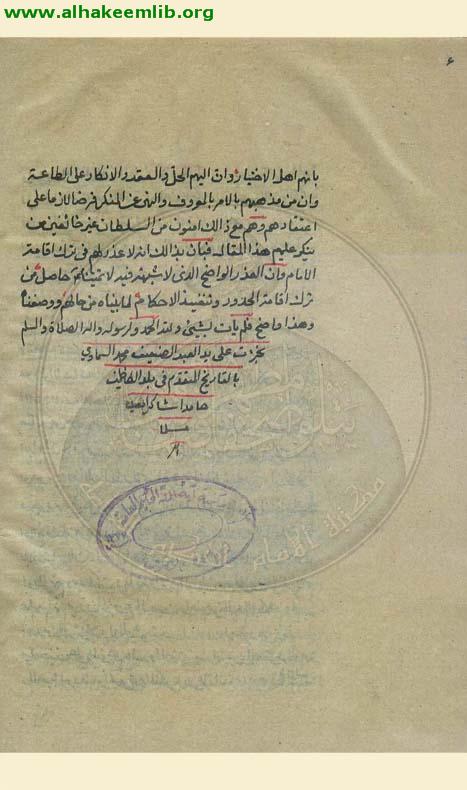 www.alhakeemlib.org
٤
بانهم اهل الاختيار وان اليهم الحل والعقد والانكار على الطاعة
وان من مذهبهم بالامر بالمعروف والنهي عن المنكر فرضا لازما على
اعتقادهم وهم مع ذلك امنون من السلطان غير خائفين من
نكر عليهم هذا المقال فبان بذلك انه لا عذر لهم في ترك اقامة
الامام وان العذر الواضح الذي لا شبهة فيه لائمتنا حاصل من
ترك اقامة الحدود وتنفيذ الاحكام لما بيناه من حالهم ووصفناه
وهذا واضح فلم يات بشيئ ولله الحمد ولرسوله واله الصلاة والسلم
نجزت على يد العبد الضعيف محمد السماوي
بالتاريخ المتقدم في بلد الكاظمين
حامدا شاكرا